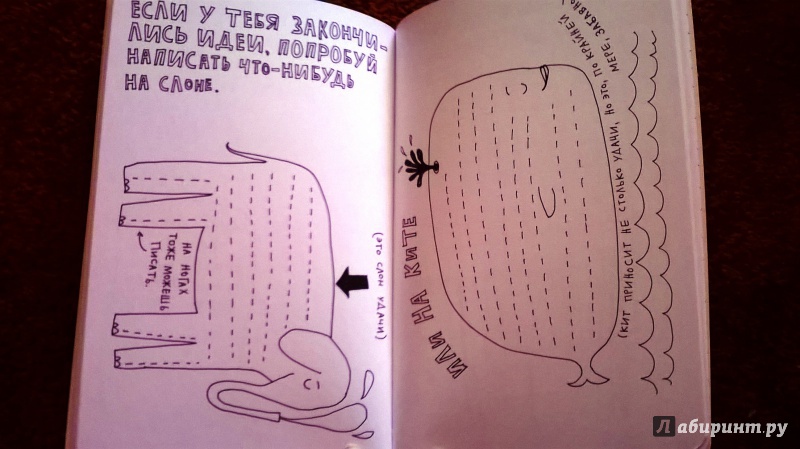 ЕСЛИ У ТЕБЯ ЗАКОНЧИ-
ЛИСЬ ИДЕИ, ПОПРОБУЙ
НАПИСАТЬ ЧТО-НИБУДЬ
НА СЛОНЕ.
НА НОГАХ
ТОЖЕ МОЖЕШЬ
ПИСАТЬ.
(ЭТО СЛОН УДАЧИ)
ИЛИ НА КИТЕ
(КИТ ПРИНОСИТ НЕ СТОЛЬКО УДАЧИ, НО ЭТО, ПО КРАЙНЕЙ
МЕРЕ, ЗАБАВНО
Лабиринт.ру